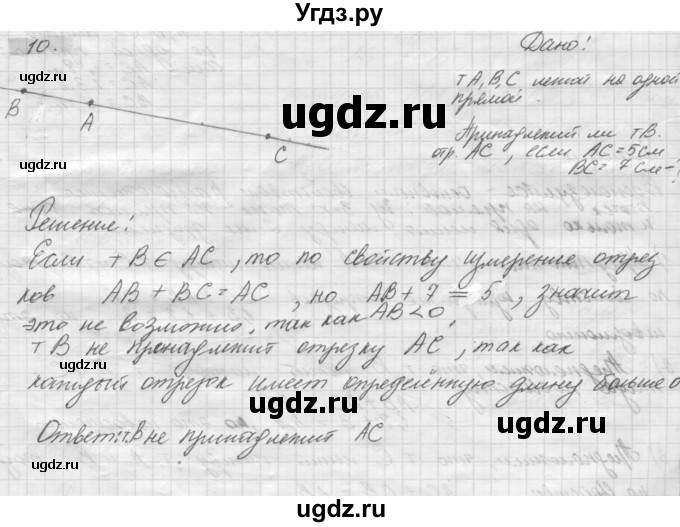 Угдз.ру
10.
Дано:
т A, B, C лежат на одной
прямой.
Принадлежит ли т B.
отр. AC, если AC = 5 см
BC = 7 см - ?
B
A
C
ugdz.ru
ugdz.ru
ugdz.ru
ugdz.ru
Решение:
Если т B ∈ AC, то по свойству измерение отрез
ков AB + BC = AC, но AB + 7 = 5, значит
это не возможно, так как AB < 0,
т B не принадлежит отрезку AC, так как
каждый отрезок имеет определённую длину больше 0
ugdz.ru
ugdz.ru
ugdz.ru
ugdz.ru
Ответ: т. B не принадлежит AC
ugdz.ru
ugdz.ru
ugdz.ru
ugdz.ru